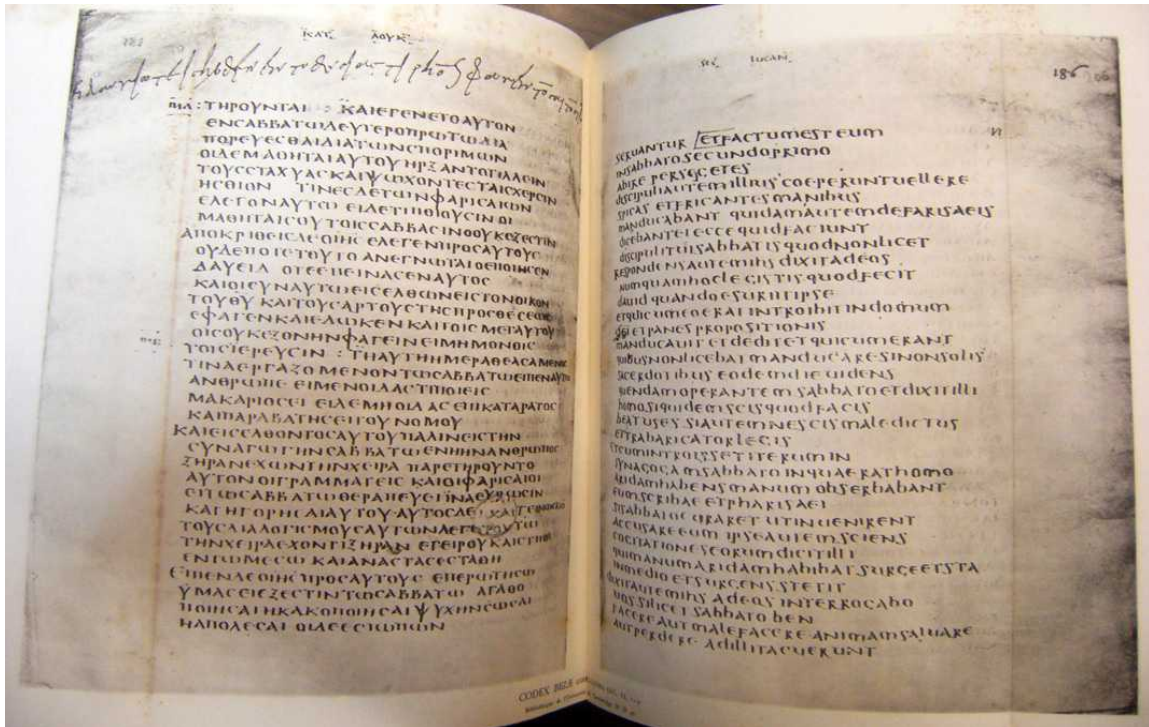 ΚΑΤ ΛΟΥΚ
ΤΗΡΟΥΝΤΑΙ : ΚΑΙΕΓΕΝΕΤΟΑΥΤΟΝ
ΕΝΣΑΒΒΑΤΩΔΕΥΤΕΡΟΠΡΩΤΩΔΙΑ
ΠΟΡΕΥΕΣΘΑΙΔΙΑΤΩΝΣΠΟΡΙΜΩΝ
ΟΙΔΕΜΑΘΗΤΑΙΑΥΤΟΥΗΡΞΑΝΤΟΤΙΛΛΕΙΝ
ΤΟΥΣΣΤΑΧΥΑΣΚΑΙΨΩΧΟΝΤΕΣΤΑΙΣΧΕΡΣΙΝ
ΗΣΘΙΟΝ ΤΙΝΕΣΔΕΤΩΝΦΑΡΙΣΑΙΩΝ
ΕΛΕΓΟΝΑΥΤΩ ΕΙΔΕΤΙΠΟΙΟΥΣΙΝΟΙ
ΜΑΘΗΤΑΙΣΟΥΤΟΙΣΣΑΒΒΑΣΙΝΟΟΥΚΕΞΕΣΤΙΝ
ΑΠΟΚΡΙΘΕΙΣΔΕΟΙΗΣ ΕΛΕΓΕΝΠΡΟΣΑΥΤΟΥΣ
ΟΥΔΕΠΟΤΕΤΟΥΤΟΑΝΕΓΝΩΤΑΙΟΕΠΟΙΗΣΕΝ
ΔΑΥΕΙΔ ΟΤΕΕΠΕΙΝΑΣΕΝΑΥΤΟΣ
ΚΑΙΟΙΣΥΝΑΥΤΩΕΙΣΕΛΘΩΝΕΙΣΤΟΝΟΙΚΟΝ
ΤΟΥΘΥ ΚΑΙΤΟΥΣΑΡΤΟΥΣΤΗΣΠΡΟΣΘΕΣΕΩΣ
ΕΦΑΓΕΝΚΑΙΕΔΩΚΕΝ ΚΑΙΤΟΙΣΜΕΤΑΥΤΟΥ
ΟΙΣΟΥΚΕΞΟΝΗΝΦΑΓΕΙΝΕΙΜΗΜΟΝΟΙΣ
ΤΟΙΣΙΕΡΕΥΣΙΝ : ΤΗΑΥΤΗΗΜΕΡΑΘΕΑΣΑΜΕΝΟΣ
ΤΙΝΑΕΡΓΑΖΟΜΕΝΟΝΤΩΣΑΒΒΑΤΩΕΙΠΕΝΑΥΤΩ
ΑΝΘΡΩΠΕ ΕΙΜΕΝΟΙΔΑΣΤΙΠΟΙΕΙΣ
ΜΑΚΑΡΙΟΣΕΙ ΕΙΔΕΜΗΟΙΔΑΣΕΠΙΚΑΤΑΡΑΤΟΣ
ΚΑΙΠΑΡΑΒΑΤΗΣΕΙΤΟΥΝΟΜΟΥ
ΚΑΙΕΙΣΕΛΘΟΝΤΟΣΑΥΤΟΥΠΑΛΙΝΕΙΣΤΗΝ
ΣΥΝΑΓΩΓΗΝΣΑΒΒΑΤΩΕΝΗΗΝΑΝΘΡΩΠΟΣ
ΞΗΡΑΝΕΧΩΝΤΗΝΧΕΙΡΑ ΠΑΡΕΤΗΡΟΥΝΤΟ
ΑΥΤΟΝΟΙΓΡΑΜΜΑΤΕΙΣ ΚΑΙΟΙΦΑΡΙΣΑΙΟΙ
ΕΙΤΩΣΑΒΒΑΤΩΘΕΡΑΠΕΥΕΙΙΝΑΕΥΡΩΣΙΝ
ΚΑΤΗΓΟΡΗΣΑΙΑΥΤΟΥ ΑΥΤΟΣΔΕ ΓΕΙΝΩΣΚΩ
ΤΟΥΣΔΙΑΛΟΓΙΣΜΟΥΣΑΥΤΩΝΛΕΓΕΙΤΩ
ΤΗΝΧΕΙΡΑΕΧΟΝΤΙΞΗΡΑΝ ΕΓΕΙΡΟΥΚΑΙΣΤΗΘΙ
ΕΝΤΩΜΕΣΩ ΚΑΙΑΝΑΣΤΑΣΕΣΤΑΘΗ
ΕΙΠΕΝΔΕΟΙΗΣ ΠΡΟΣΑΥΤΟΥΣ ΕΠΕΡΩΤΗΣΩ
ΥΜΑΣΕΙΕΞΕΣΤΙΝΤΩΣΑΒΒΑΤΩ ΑΓΑΘΟ
ΠΟΙΗΣΑΙΗΚΑΚΟΠΟΙΗΣΑΙΨΥΧΗΝΣΩΣΑΙ
ΗΑΠΟΛΕΣΑΙ ΟΙΔΕΕΣΙΩΠΩΝ
CODEX BEZÆ
sec lucan
186
seruantur etfactumesteum
insabbatosecundoprimo
abire persegetes
discipuliautemillius coeperuntuellere
spicas etfricantesmanibus
manducabant quidamautemdefarisaeis
dicebantei eccequidfaciunt
discipulituisabbatis quodnonlicet
respondensautemihs dixitadeos
numquamhoclegistis quodfecit
dauid quandoesuriitipse
etquicumeoerat introibitindomum
dei etpanespropositionis
manducauit etdeditetquicumerant
quibusnonlicebatmanducaresinonsolis
sacerdotibus eodemdieuidens
quendamoperantemsabbatoetdixitilli
homosiquidemscisquodfacis
beatuses siautemnescismaledictus
ettrabaricatorlegis
etcumintroissetiterumin
synagogamsabbatoinquaerathomo
aridamhabensmanumobserbabant
eumscribae etpharisaei
sisabbatocuraretutinuenirent
accusareeum ipseautemsciens
cogitationeseorumdicitilli
quimanumaridamhabibat surgeetsta
inmedioetsurgensstetit
dixitautemihs adeos interrogabo
uossilicetsabbatoben
facereautmalefacere animamsaluare
autperdere adillitacuerunt